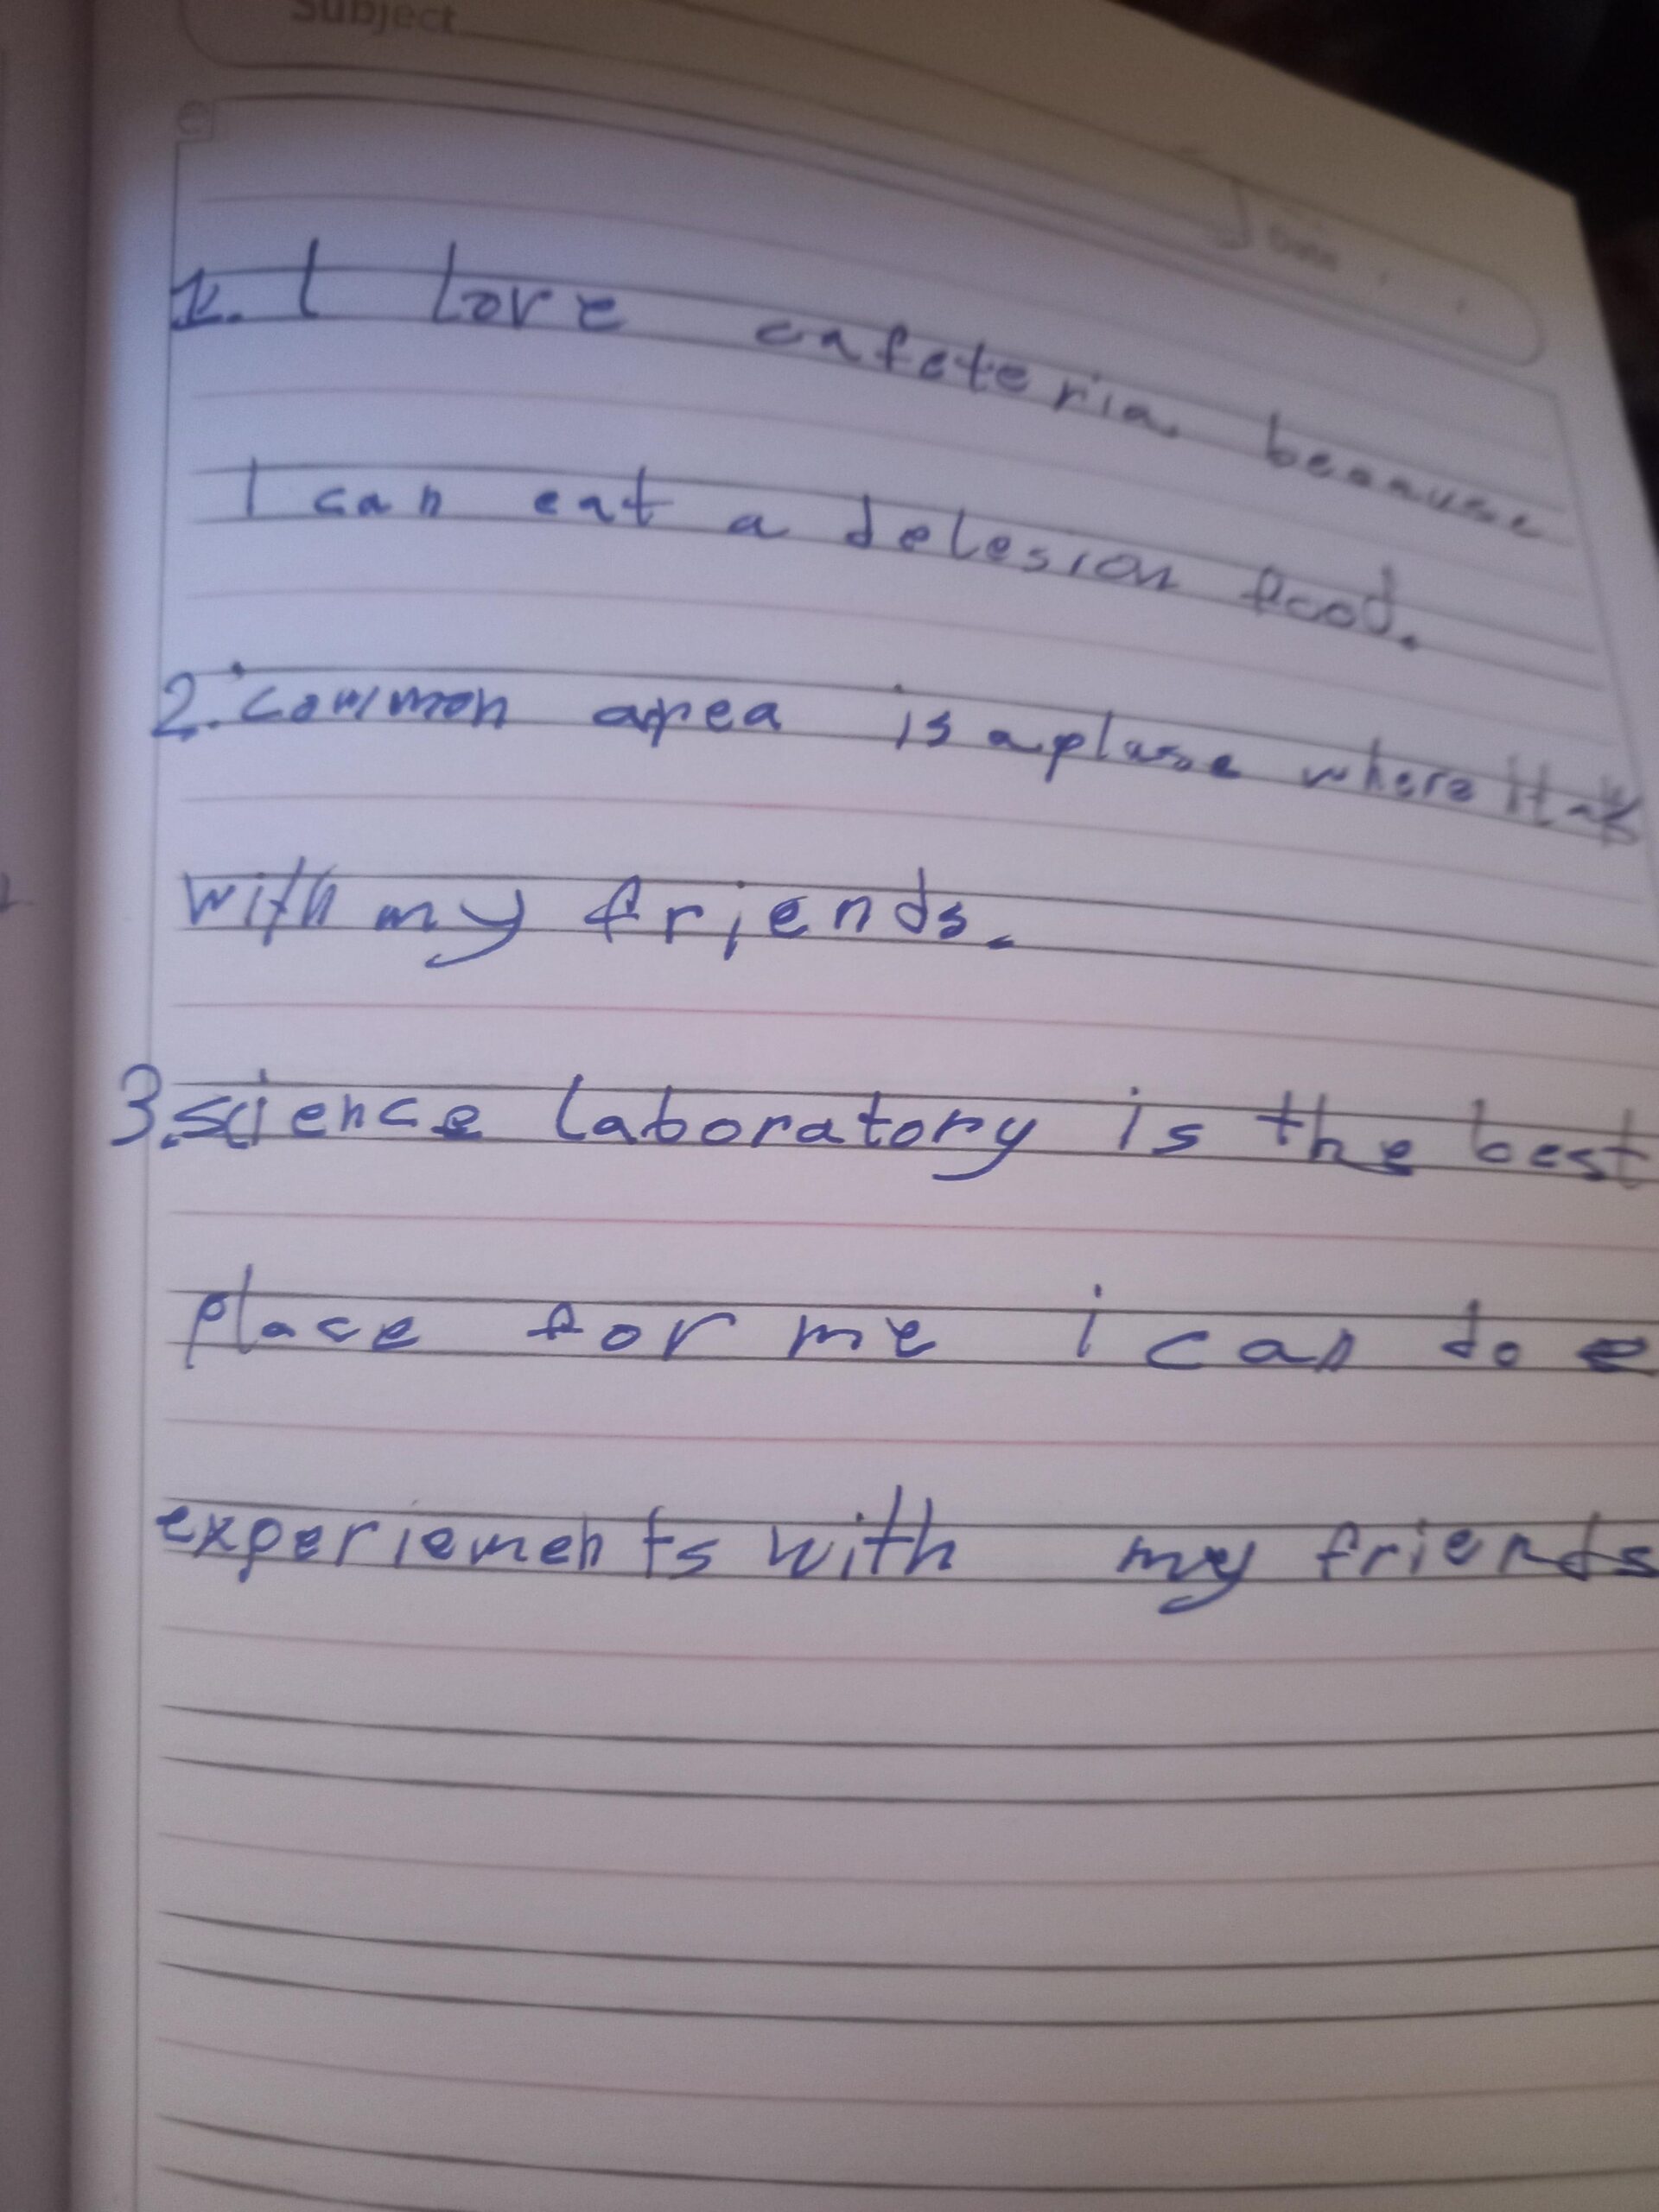 Subject
Date
1. I love cafeteria. beaause
I can eat a delesion food.
2. common area is a plase where I
with my friends.
3. science laboratory is the best
place for me i can do
experiements with my friends